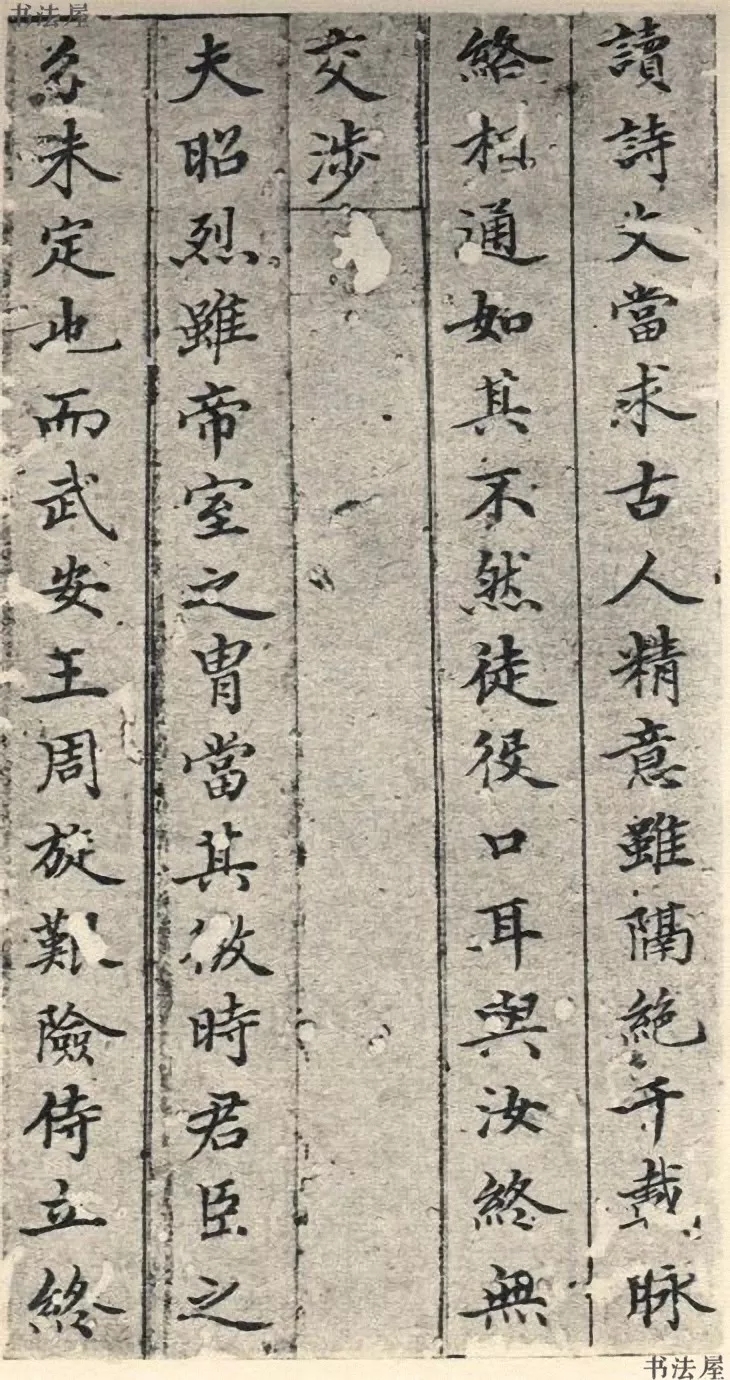 讀詩文當求古人精意雖隔絕千載脉
絡相通如其不然徒役口耳與汝終無
交涉
夫昭烈雖帝室之胄當其微時君臣之
分未定也而武安王周旋艱險侍立終
书法屋
书法屋